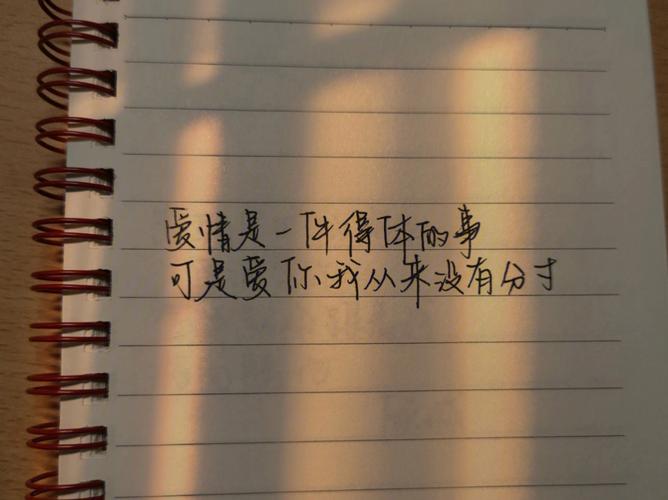 爱情是一件得体的事
可是爱你我从来没有分寸